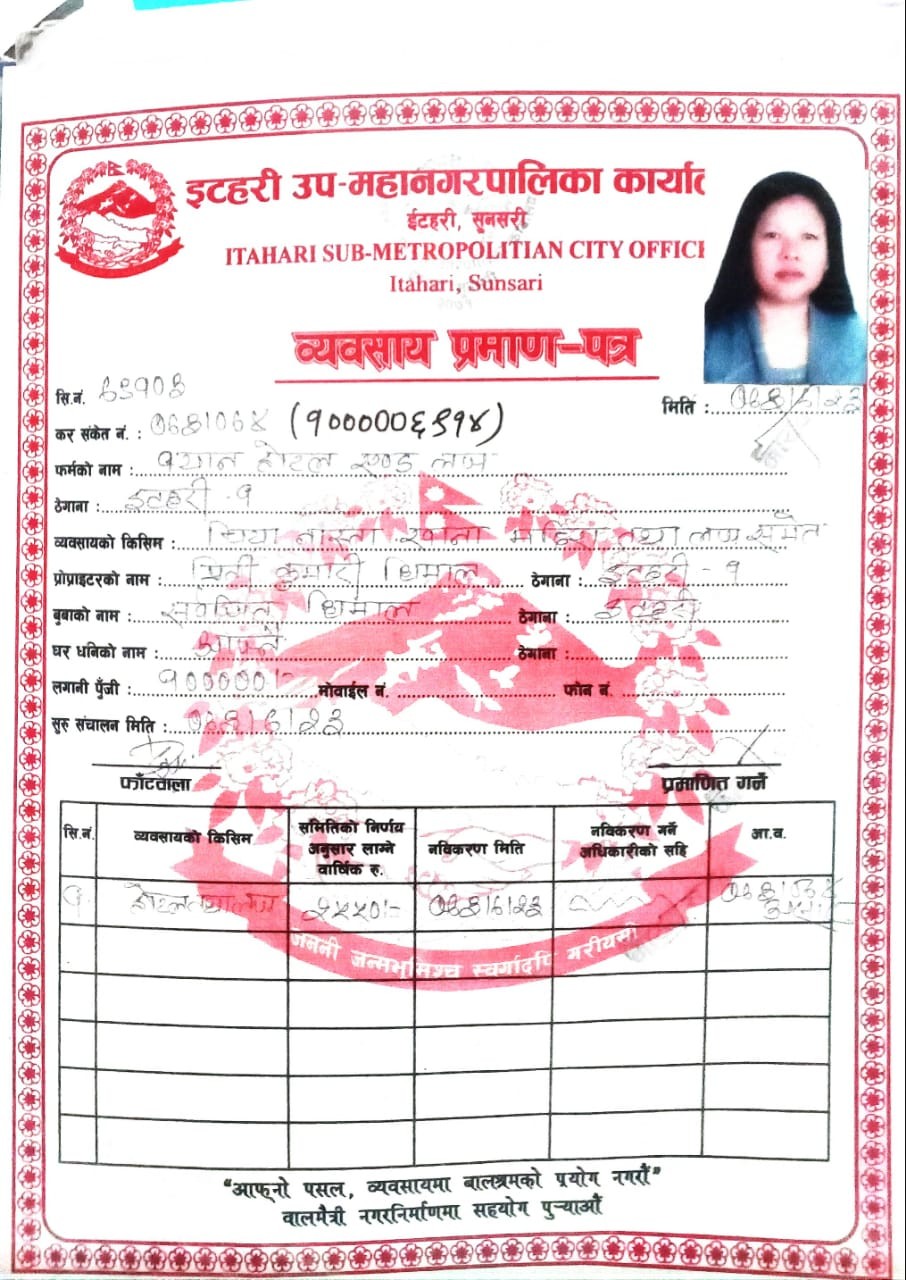 इटहरी उप-महानगरपालिका कार्या
ईटहरी, सुनसरी
ITAHARI SUB-METROPOLITIAN CITY OFFICE
Itahari, Sunsari
व्यवसाय प्रमाण-पत्र
सि.नं.
मिति :
कर संकेत नं. : (१०००००६९१४)
फर्मको नाम : होटल एण्ड लज
ठेगाना : इटहरी - १
व्यवसायको किसिम : चिया नास्ता खाना मदिरा तथा लज समेत
प्रोप्राइटरको नाम : कुमारी धिमाल ठेगाना : इटहरी - १
बुबाको नाम : धिमाल ठेगाना : इटहरी
घर धनिको नाम : आफ्नै ठेगाना :
लगानी पुँजी : १०००००।- मोवाईल नं. फोन नं.
सुरु संचालन मिति :
फाँटवाला प्रमाणित गर्ने
सि.नं. व्यवसायको किसिम समितिको निर्णय अनुसार लाग्ने वार्षिक रु. नविकरण मिति नविकरण गर्ने अधिकारीको सहि आ.व.
१ होटल तथा लज
जननी जन्मभूमिश्च स्वर्गादपि गरीयसी
“आफ्नो पसल, व्यवसायमा बालश्रमको प्रयोग नगरौं”
वालमैत्री नगरनिर्माणमा सहयोग पुऱ्याऔं